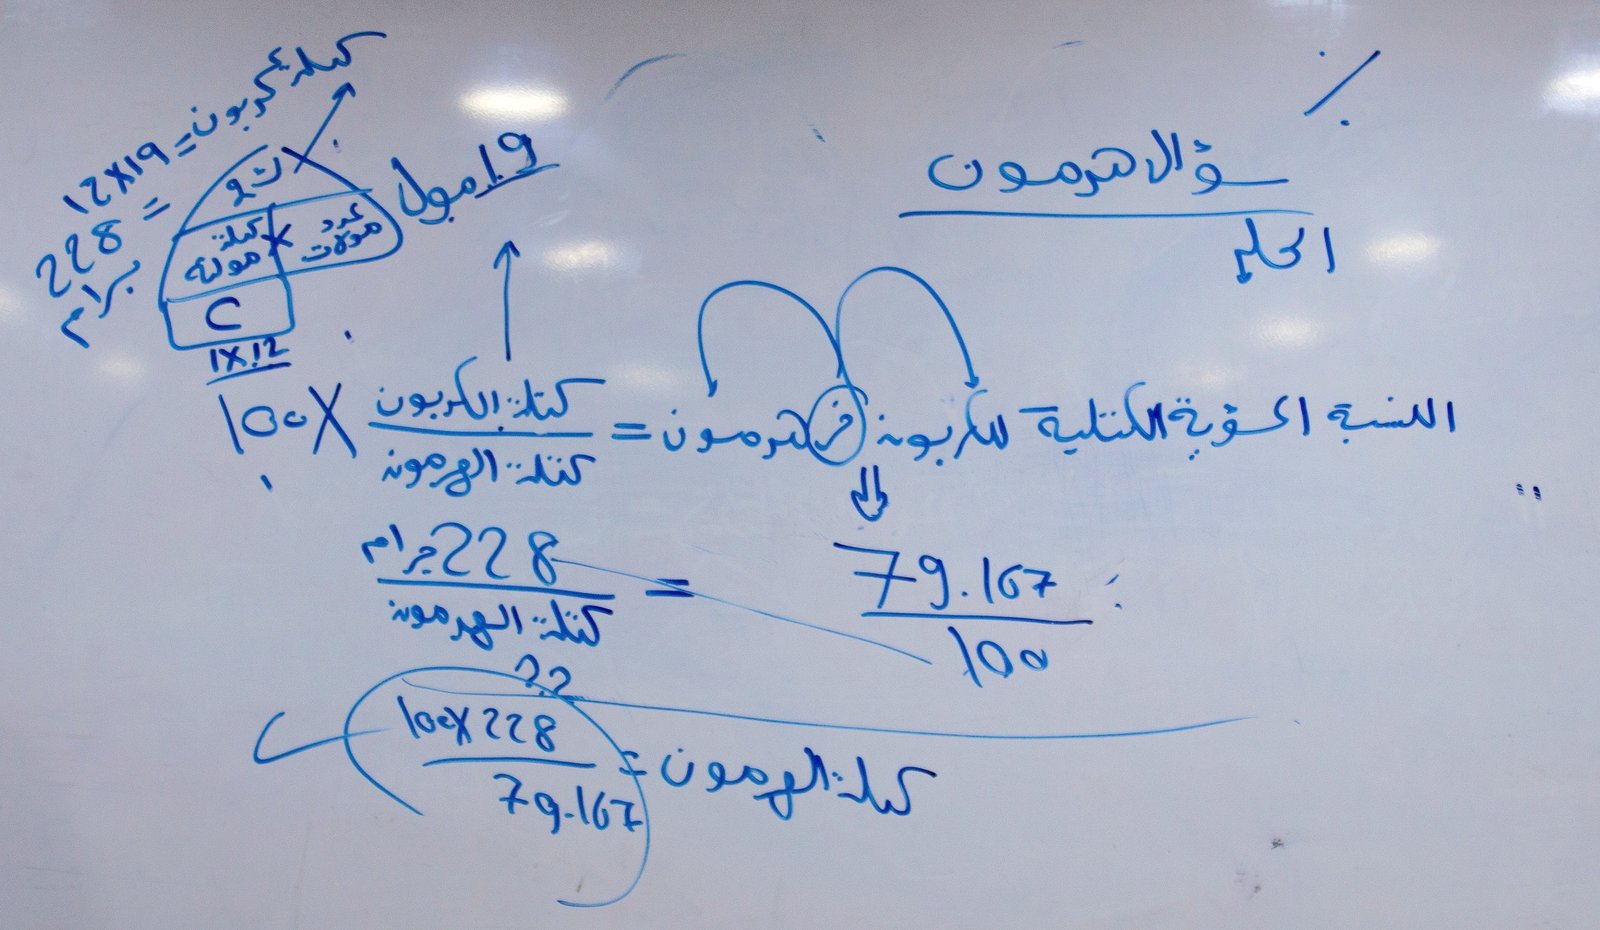 %
سؤال هرمون
الحل
النسبة المئوية الكتلية للكربون في هرمون = كتلة الكربون / كتلة الهرمون × 100
19 مول
كتلة كربون = 19×12
= 228 جرام
ك
كتلة مولية × عدد مولات
C
1×12
79.167 / 100 = 228 جرام / كتلة الهرمون
??
كتلة الهرمون = 100×228 / 79.167